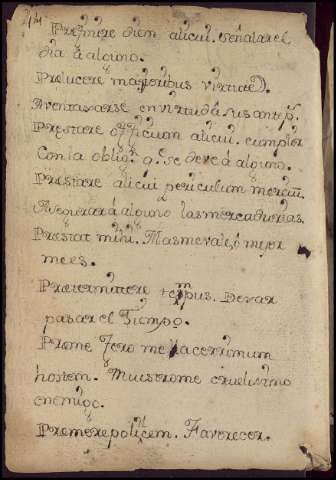 Prefinire diem alicui. Señalar el
dia à alguno.
Prelucere maioribus virtute.
Aventaxarse en virtud à sus antep.
Prestare officium alicui. cumplir
Con la oblig. q. se deve à alguno.
Prestare alicui periculum mercium.
Asegurar à alguno las mercadurias.
Prestat mihi. Mas me vale, ò mejor
me es.
Pretermittere tempus. Dexar
pasar el Tiempo.
Prome fero me acerrimum
hostem. Muestrome cruelisimo
enemigo.
Premere policem. Favorecer.